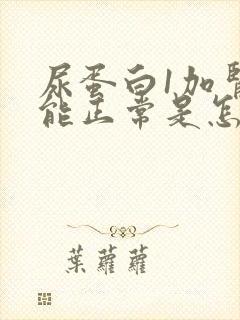 尿蛋白1加
能正常是怎
葉蘿蘿